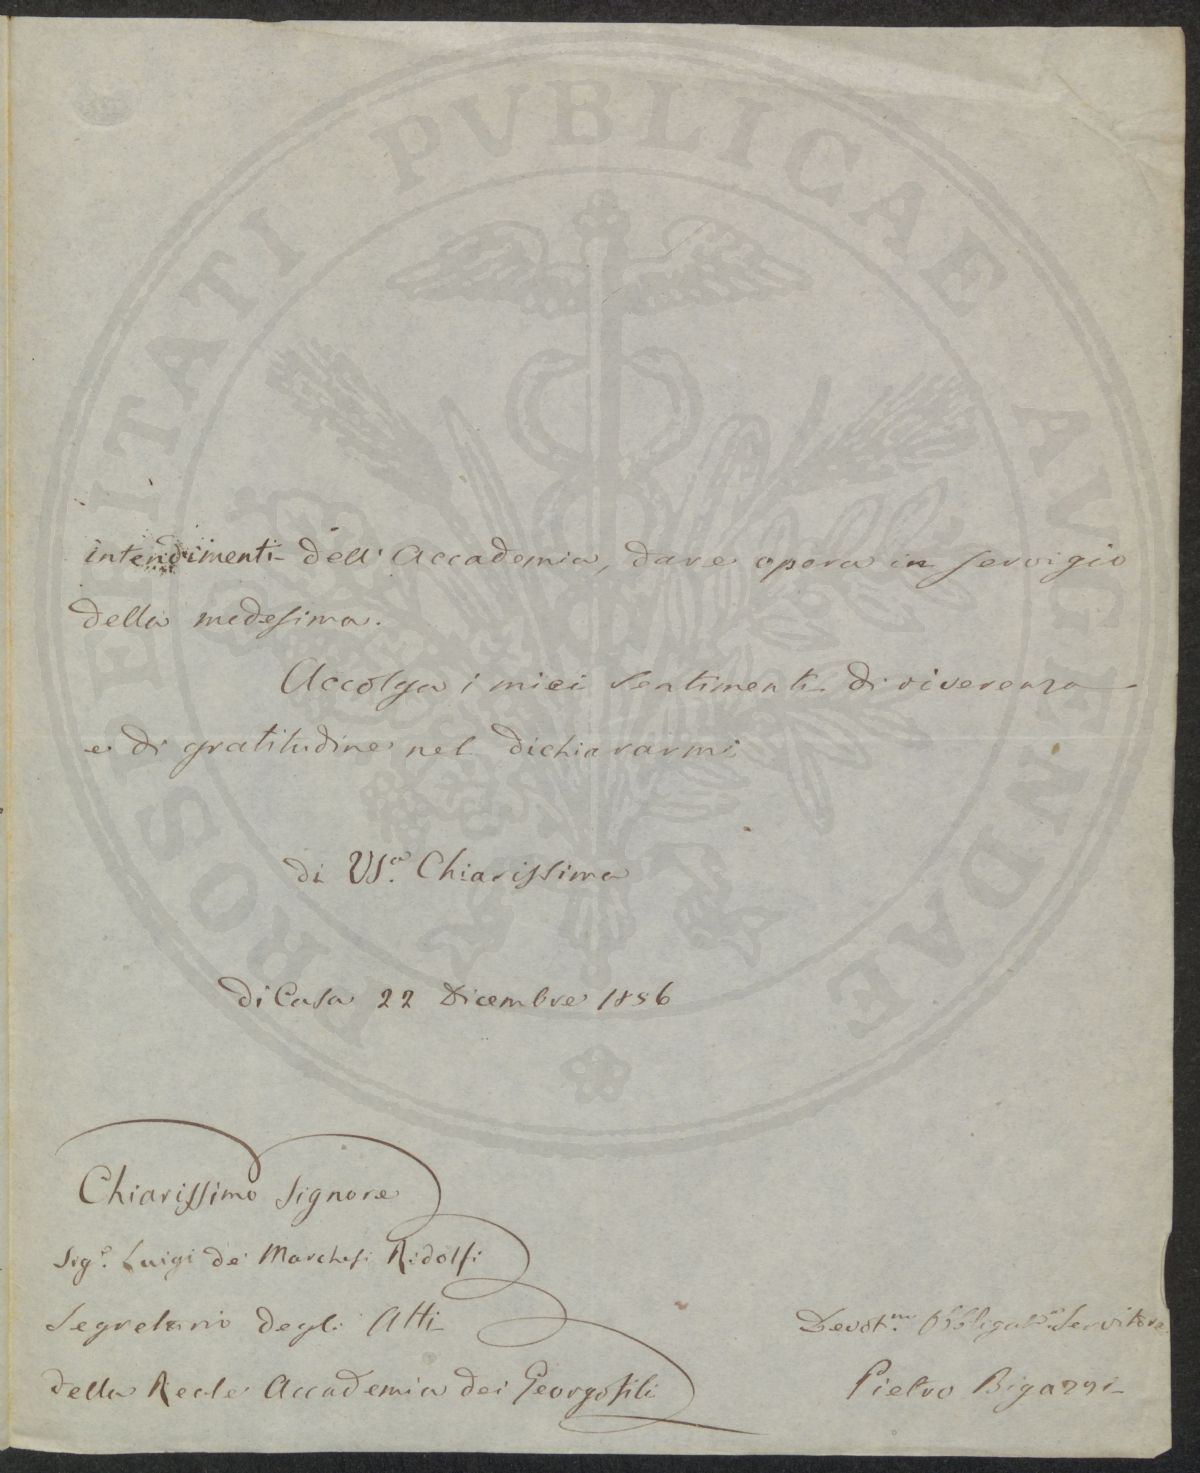 PROSPERITATI PVBLICAE AVGENDAE
intendimenti dell' Accademia, dare opera in servigio
della medesima.
Accolga i miei sentimenti di riverenza
e di gratitudine nel dichiararmi
di VS.a Chiarissima
di Casa 22 Dicembre 1856
Chiarissimo Signore
Sig.r Luigi de' Marchesi Ridolfi
Segretario degli Atti
della Reale Accademia dei Georgofili
Devot.mo Obbligat.mo Servitore
Pietro Bigazzi